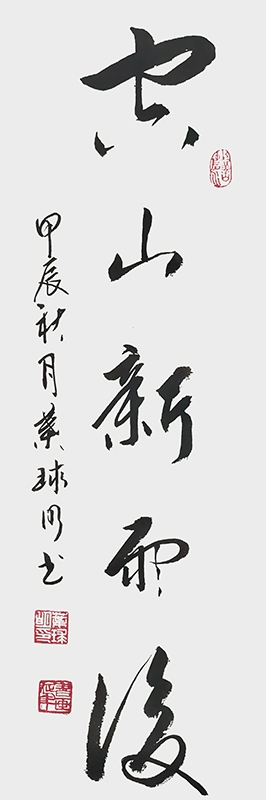 空山新雨後
甲辰秋月葉球明书